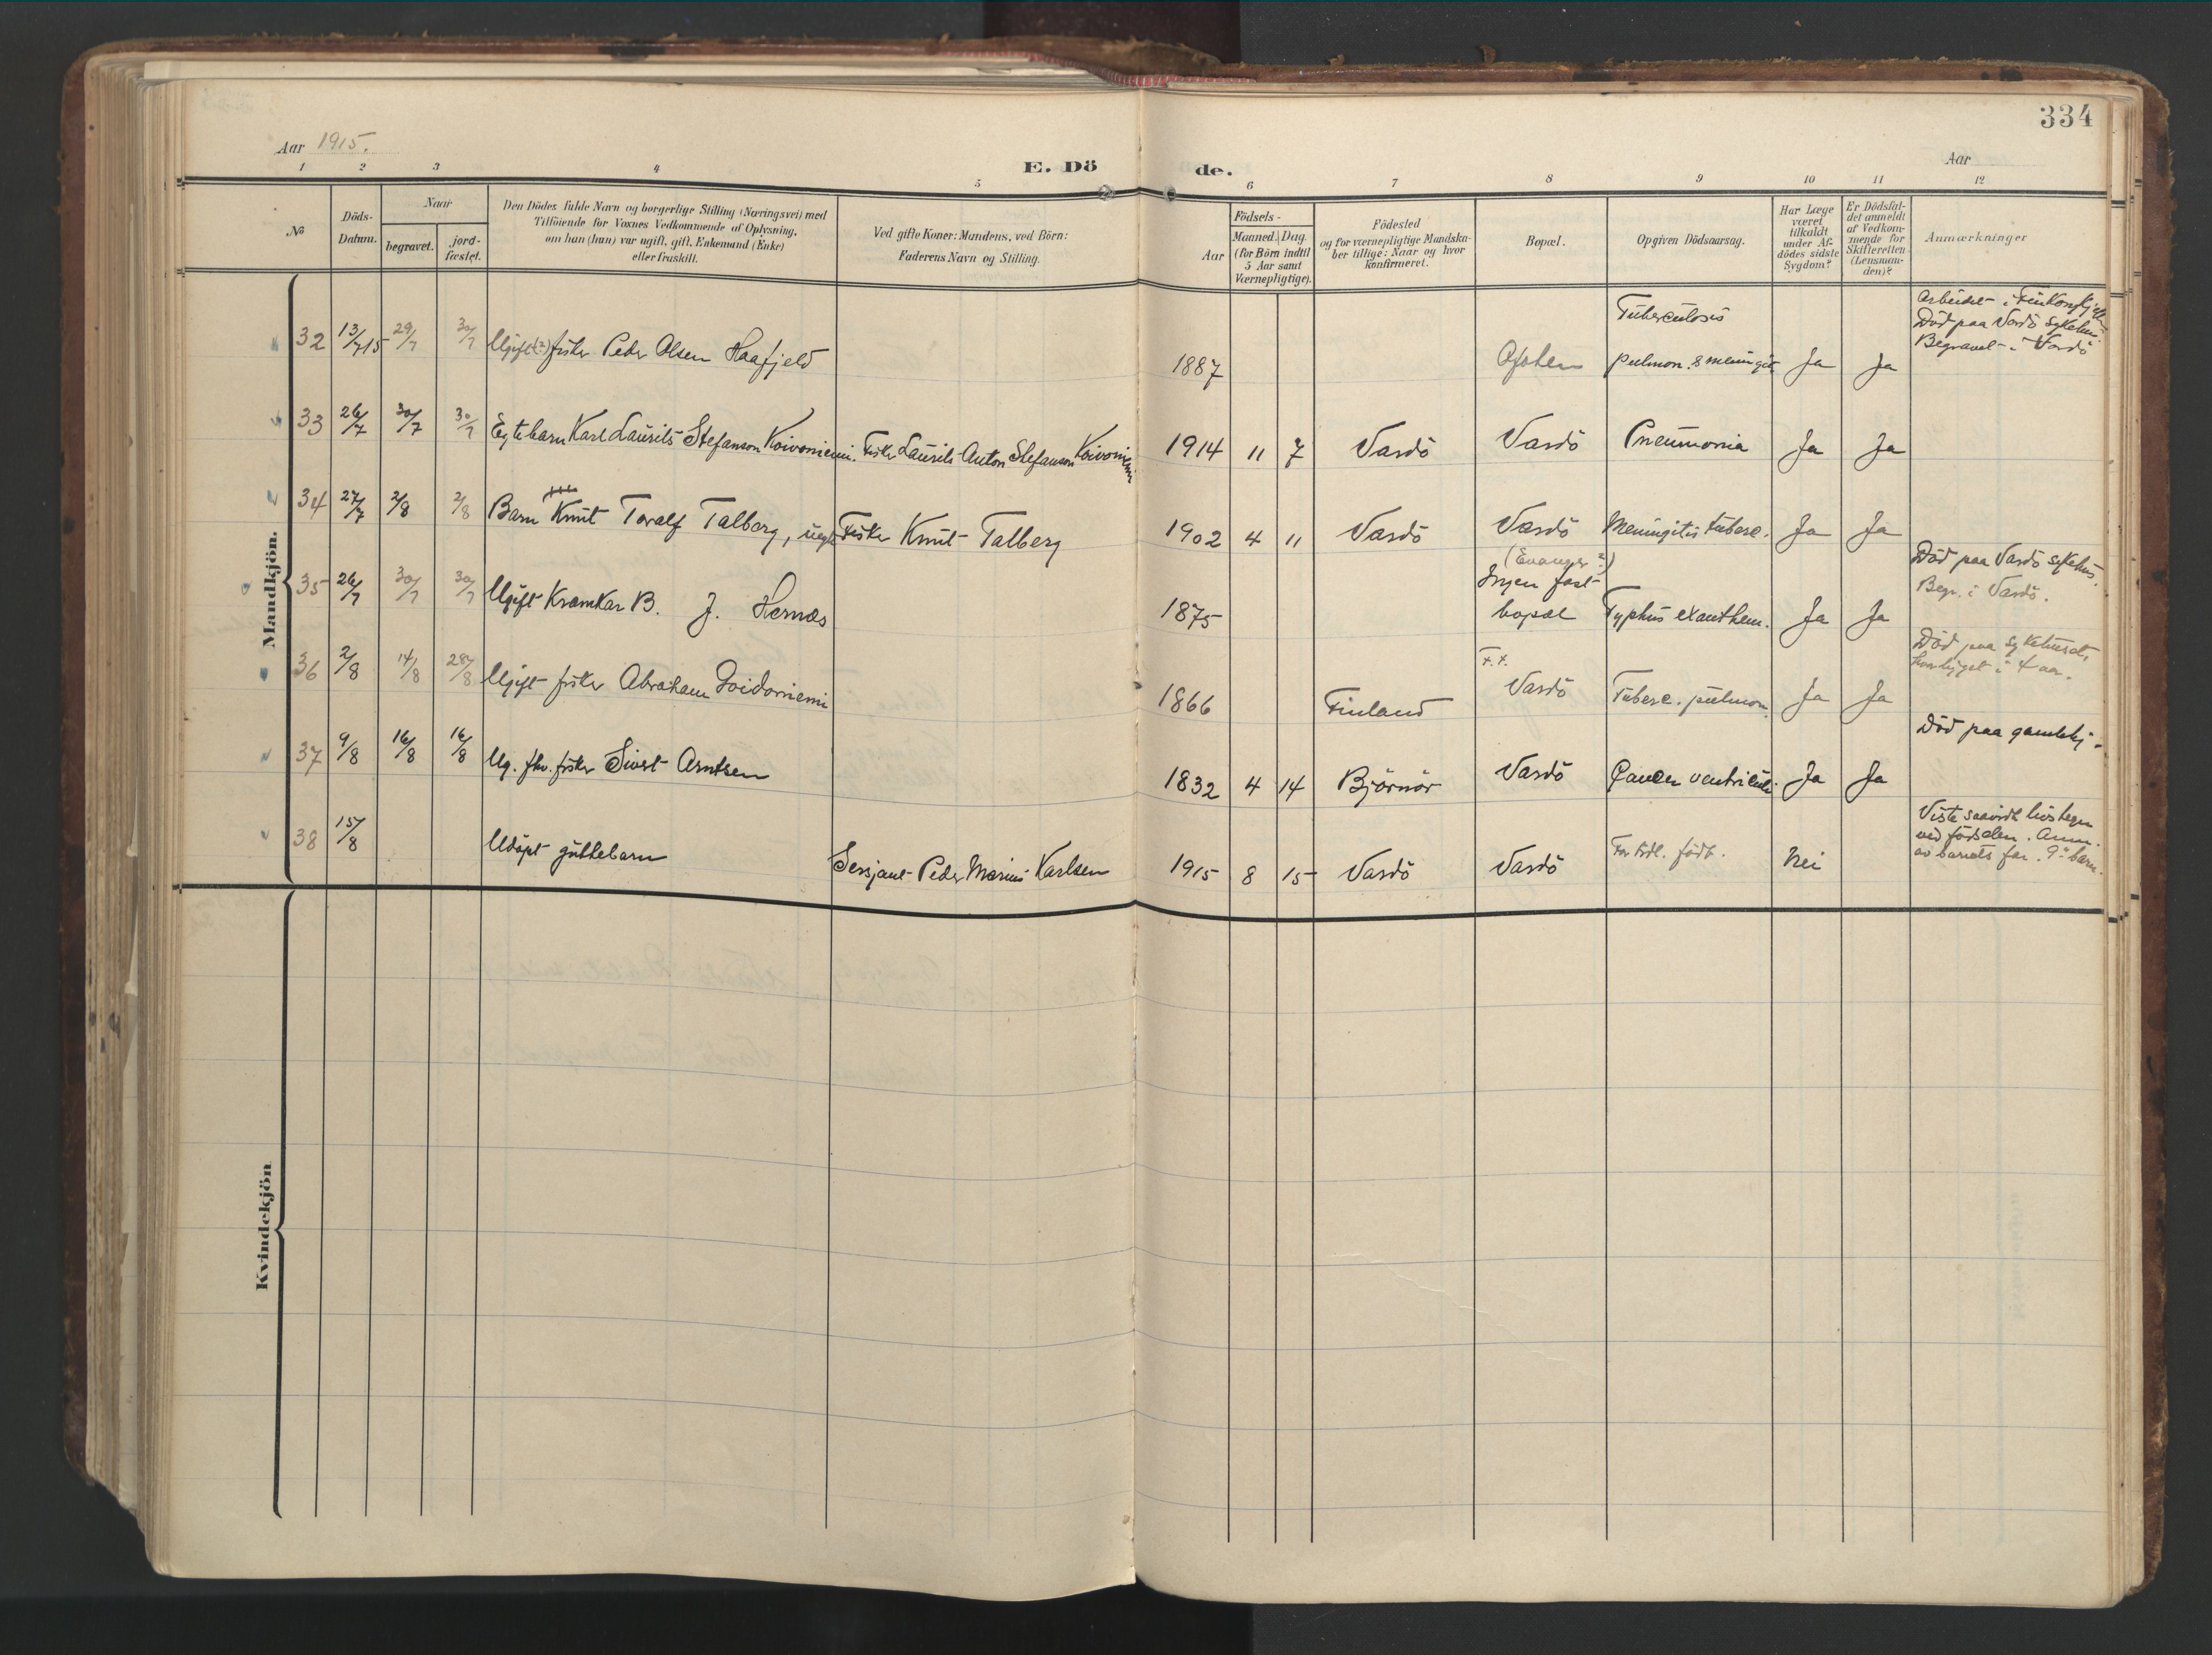 334
Aar 1915.
Aar
E. Dö de.
1 2 3 4 5 6 7 8 9 10 11 12
No
Döds-
Datum.
Naar
begravet.
jord-
fæstet.
Den Dödes fulde Navn og borgerlige Stilling (Næringsvei) med
Tilföiende for Voxnes Vedkommende af Oplysning,
om han (hun) var ugift, gift, Enkemand (Enke)
eller fraskilt.
Ved gifte Koner: Mandens, ved Börn:
Faderens Navn og Stilling.
Aar
Födsels-
Maaned. Dag.
(for Börn indtil
5 Aar samt
Værnepligtige).
Födested
og for værnepligtige Mandska-
ber tillige: Naar og hvor
konfirmeret.
Bopæl.
Opgiven Dödsaarsag.
Har Læge
været
tilkaldt
under Af-
dödes sidste
Sygdom?
Er Dödsfal-
det anmeldt
af Vedkom-
mende for
Skifteretten
(Lensman-
den)?
Anmærkninger
Mandkjön.
32 13/7 15 29/7 30/7 Ugift (?) fisker Peder Olsen Haafjeld 1887 Ofoten
Tuberculosis
pulmon. & meningit. Ja Ja
Arbeidet i
Död paa Vardö sykehus.
Begravet i Vardö
33 26/7 30/7 30/7 Egtebarn Karl Laurits Stefanson Koivoniemi. Fisker Laurits Anton Stefanson Koivoniemi 1914 11 7 Vardö Vardö Pneumonia Ja Ja
34 27/7 2/8 2/8 Barn Knut Toralf Talberg, uegte Fisker Knut Talberg 1902 4 11 Vardö Vardö Meningitis tuberc. Ja Ja
35 26/7 30/7 30/7 Ugift Kræmkar B. J. Hernæs 1875
(Evanger?)
Ingen fast
bopæl Typhus exanthem. Ja Ja
Död paa Vardö sykehus.
Begr. i Vardö.
36 2/8 14/8 28/8 Ugift fisker Abraham 1866 Finland
F.t.
Vardö Tuberc. pulmon. Ja Ja
Död paa sykehuset,
37 9/8 16/8 16/8 Ug. fhv. fisker Sivert Arntsen 1832 4 14 Björnör Vardö Cancer ventriculi Ja Ja
Död paa gamlehj.
38 15/8 Udöpt guttebarn Sersjant Peder Marius Karlsen 1915 8 15 Vardö Vardö For tidl. født. Nei
Viste saavidt livstegn
ved födselen. Anm.
av barnets far. 9de barn.
Kvindekjön